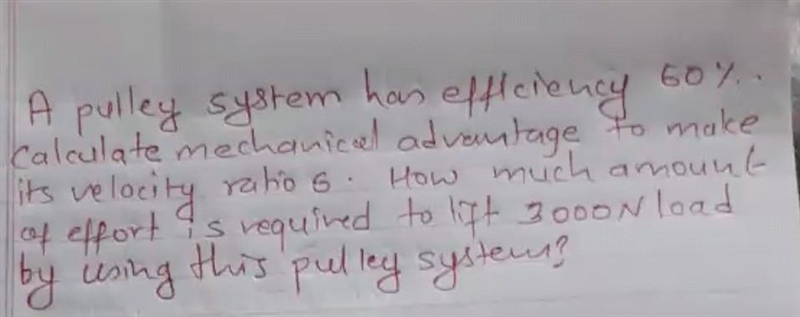 A pulley system has efficiency 60%.
Calculate mechanical advantage to make
its velocity ratio 6. How much amount
of effort is required to lift 3000N load
by using this pulley system?